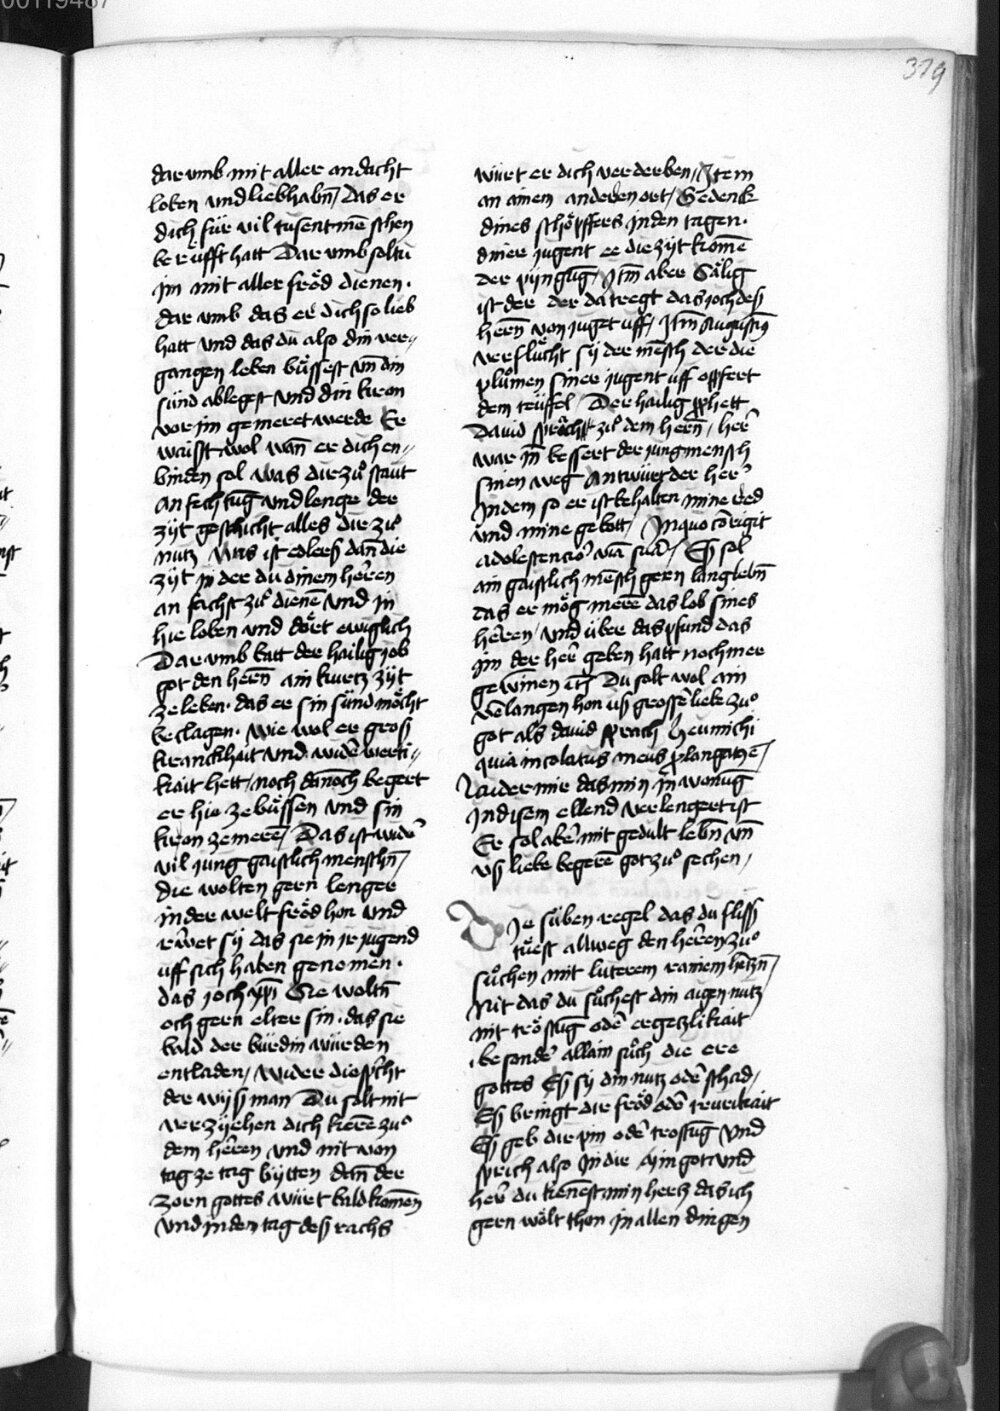 00119487
379
dar vmb mit aller andacht
loben vnd liebhabn̄ / das er
dich für vil tusent mēschen
berůfft hatt Dar vmb soltu
im mit aller fröd dienen ·
dar vmb das er dich so lieb
hatt vnd das du also din ver〃
gangen leben bůssest vn̄ din
sünd ablegest vnd din kron
vor im gemeret werde Er
waisst wol wan̄ er dich en〃
binden sol was dir zů staut
an fechtūg vnd lenge der
zÿt geschicht alles dir zů
nutz Was ist edlers dan̄ die
zÿt in der du dinem herren
an fachst zů dienē vnd in
hie loben vnd dört ewiglich
Dar vmb batt der hailig job
got den herēn ain kurtz zÿt
ze leben · das er sin sünd möcht
beclagen · wie wol er gros
kranckhait vnd widērwerti〃
kait hett / noch dānoch begert
er hie ze bůssen vnd sin
kron ze merē / Das ist wider
vil jung gaistlich menschn̄ /
die wolten gern lenger
in der welt fröd hon vnd
rüwet sÿ das sie in ir jugend
uff sich haben genomen ·
das joch xp̄i Sie woltn̄
och gern elter sin · das sie
bald der bürdin würden
entladen / wider die spricht
der wÿsß man Du solt nit
verzÿehen dich kerē zů
dem herēn vnd nit von
tag ze tag bÿtten dan̄ der
zorn gottes würt bald komēn
vnd in den tag desß rachs
würt er dich verderben / Item
an ainen anderen ort / Gedenck
dines schöpffers in den tagen ·
diner jugent ee die zÿt komē
der pÿngūg / Itm̄ aber Sälig
ist der der da tregt das joch desß
herēn von juget uff / Itm̄ Augustin9
verflücht sÿ der mēsch der die
plůmen siner jugent uff opffert
dem teüffel / Der hailig p̱phett
Dauid sprächst zů dem herēn / her̄
war in̄ bessert der jung mensch
sinen weg Antwürt der her̄
In dem so er ist behalten mine red
vnd mine gebott / In quo cōrigit
adolescencior̄ viā suā / Esß sol
ain gaistlich mēsch gern lang lebn̄
das er mög merē das lob sines
herren / vnd über das pfund das
im der her̄ geben hatt noch mer
gewīnen ec̄ Du solt wol ain
v̄langen hon vsß grosse liebe zů
got als dauid sprach Heu michi
quia incolatus meus p̱longat9 ē /
Laider mir das min in wonūg
in disem ellend verlengert ist
Er sol aber mit gedult lebn̄ vn̄
vsß liebe begerē got zů sechen /
Die süben regel das du flissß
tůest allweg den herēn zů
sůchen mit luterem rainem hertzn̄ /
Nit das du sůchest din aigen nutz
nit tröstūg oder ergetzlikait
· besonder allain sůch die ere
gottes Esß sÿ din nutz oder schad /
Esß bringt dir fröd oder trurikait
Esß geb dir pin oder trostūg vnd
sprich also in dir Min got vnd
her̄ du kenest min hertz das ich
gern wölt thon in allen dingen